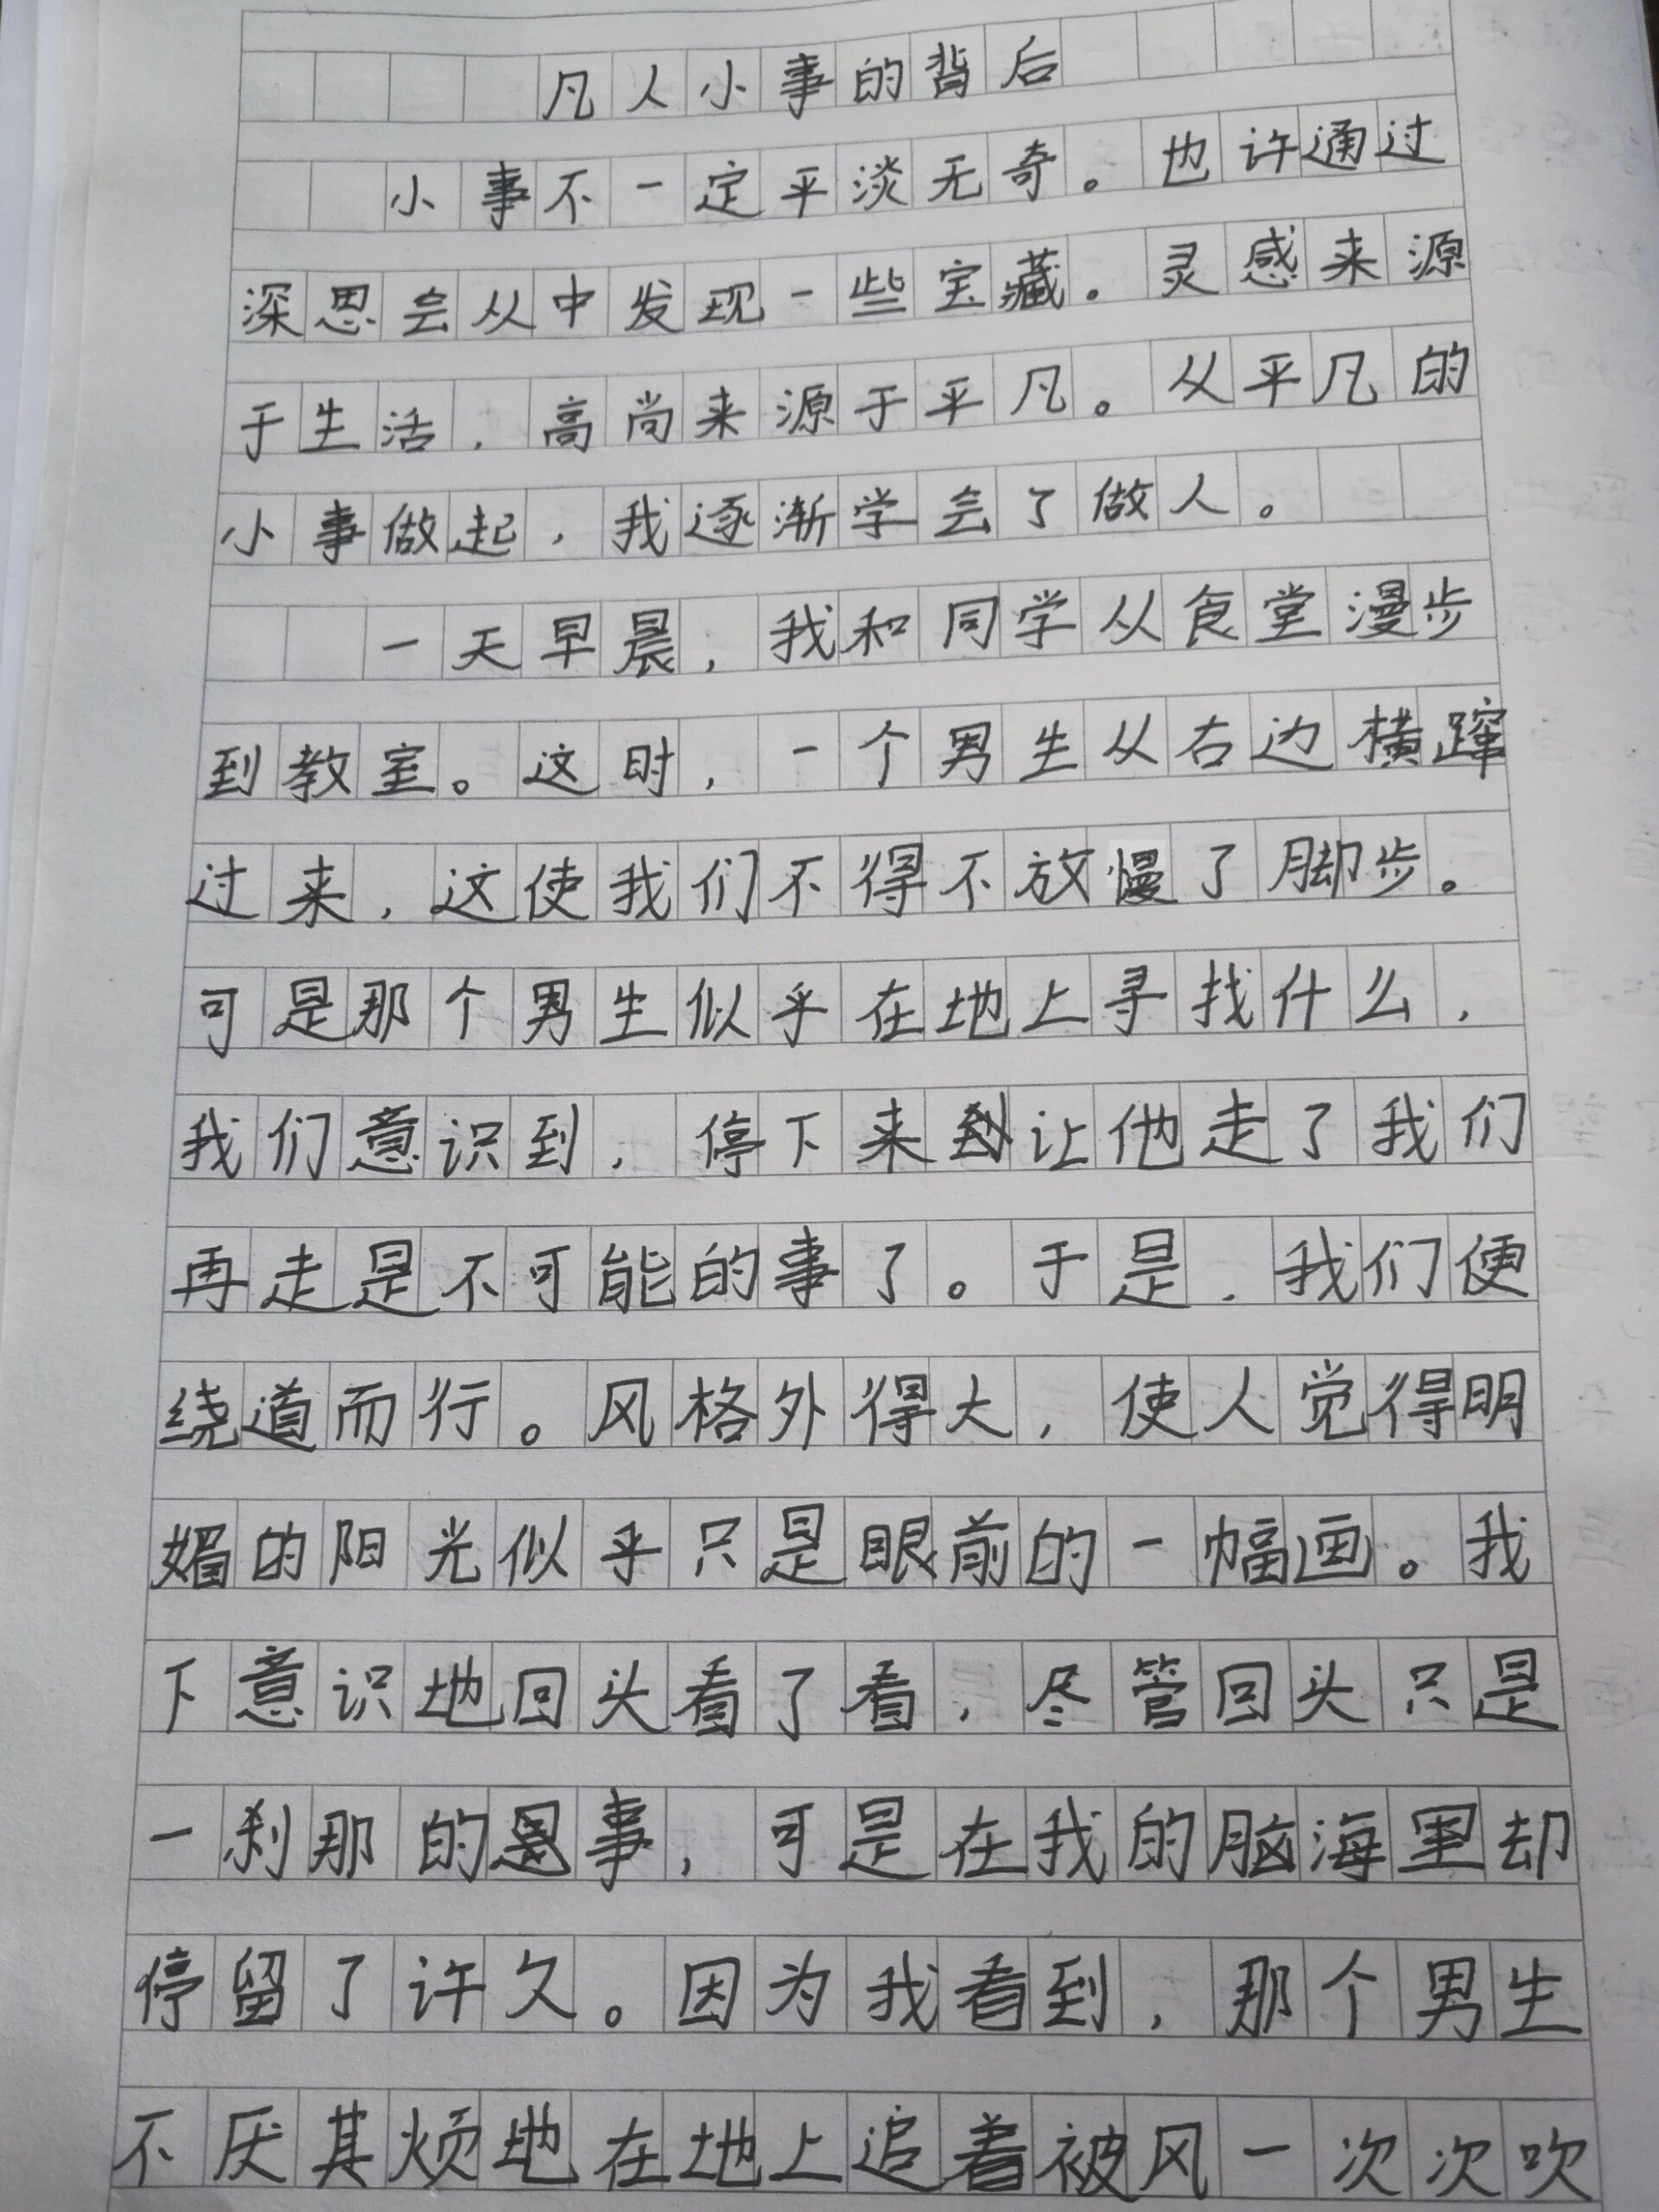 凡人小事的背后
小事不一定平淡无奇。也许通过
深思会从中发现一些宝藏。灵感来源
于生活，高尚来源于平凡。从平凡的
小事做起，我逐渐学会了做人。
一天早晨，我和同学从食堂漫步
到教室。这时，一个男生从右边横蹿
过来，这使我们不得不放慢了脚步。
可是那个男生似乎在地上寻找什么，
我们意识到，停下来让他走了我们
再走是不可能的事了。于是，我们便
绕道而行。风格外得大，使人觉得明
媚的阳光似乎只是眼前的一幅画。我
下意识地回头看了看，尽管回头只是
一刹那的事，可是在我的脑海里却
停留了许久。因为我看到，那个男生
不厌其烦地在地上追着被风一次次吹